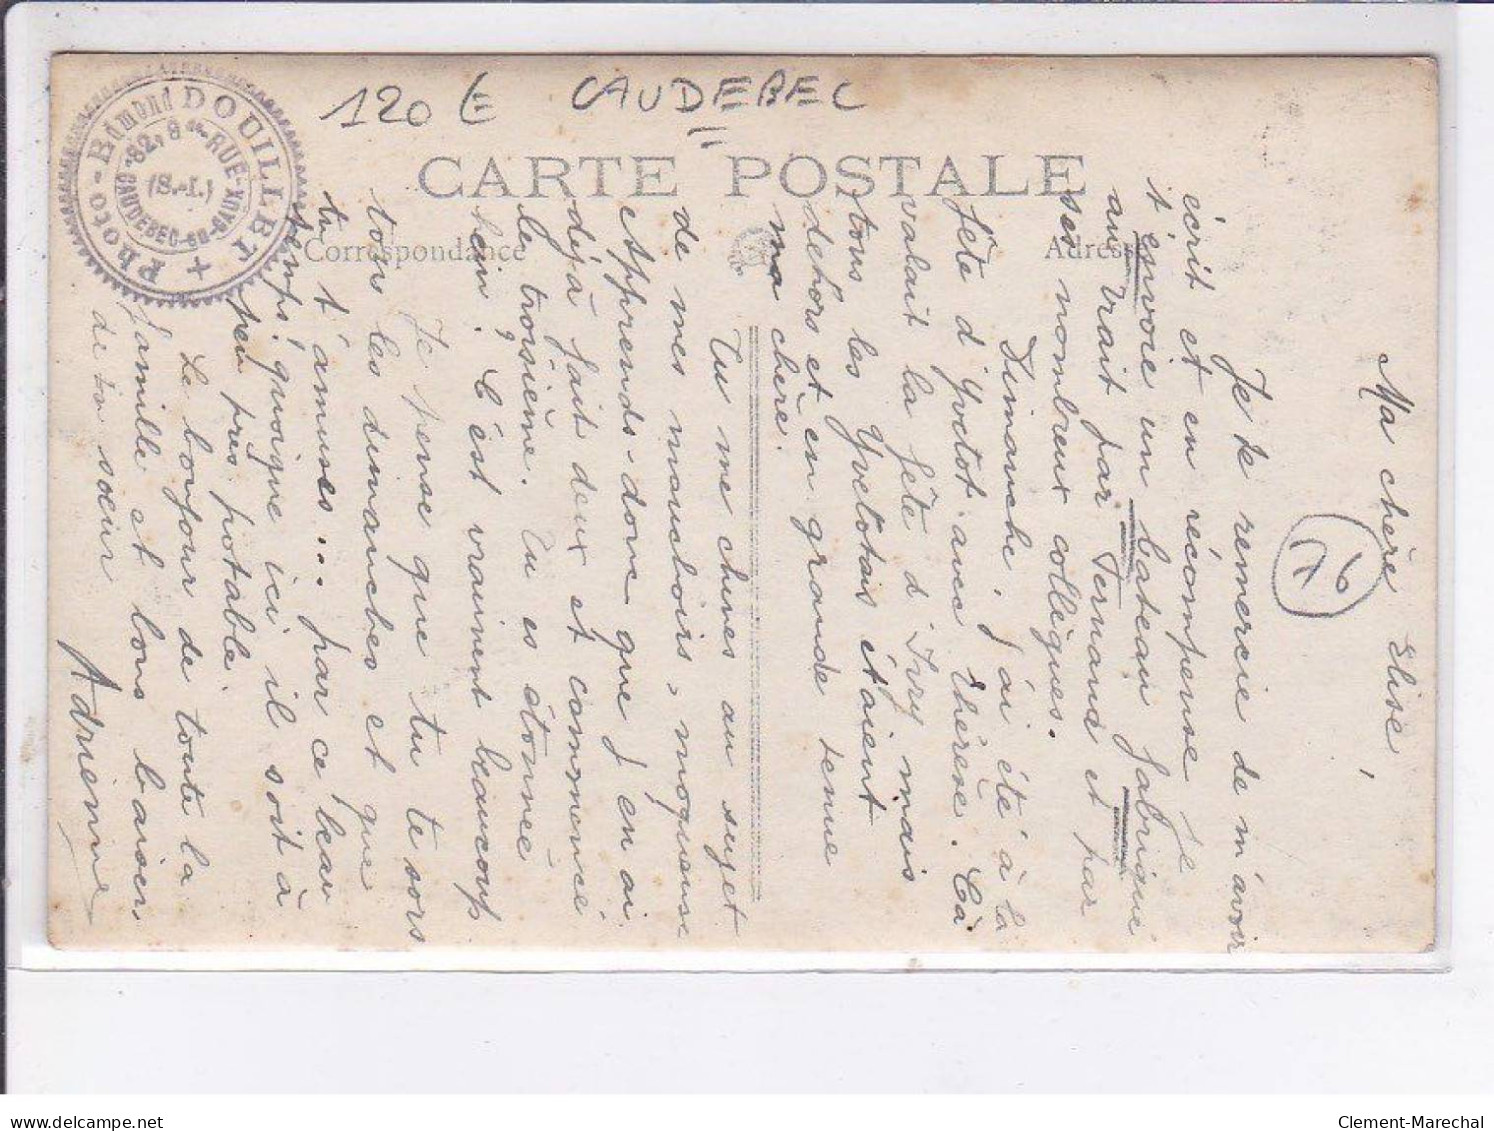 120 € CAUDEBEC
CARTE POSTALE
Correspondance
Adresse
Photo - Edmond DOUILLERT +
82, Gde-RUE-
CAUDEBEC-en-CAUX
(S.-I.)
76
Ma chère Elise,
Je te remercie de m'avoir
écrit et en récompense je
t'envoie un bateau fabriqué
au trait par Fernand et par
ses nombreux collègues.
Dimanche, j'ai été à la
fête d'Yvetot avec Thérèse. Ça
valait la fête d'Ivry mais
tous les Yvetotais étaient
dehors et en grande tenue
ma chère.
Tu me chines au sujet
de mes mouchoirs, moqueuse
Apprends-donc que j'en ai
déjà fait deux et commencé
le troisième. Tu es étonnée
hein? C'est vraiment beaucoup
Je pense que tu te sors
tous les dimanches et que
tu t'amuses... par ce beau
temps! quoique ici il soit à
peu près potable.
Le bonjour de toute la
famille et bons baisers
de ta sœur
Adrienne
www.delcampe.net
Clement-Marechal